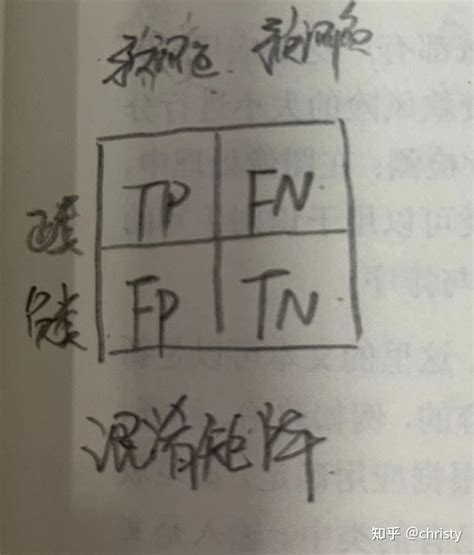 预测正 预测负
正类 TP FN
负类 FP TN
混淆矩阵
知乎 @christy